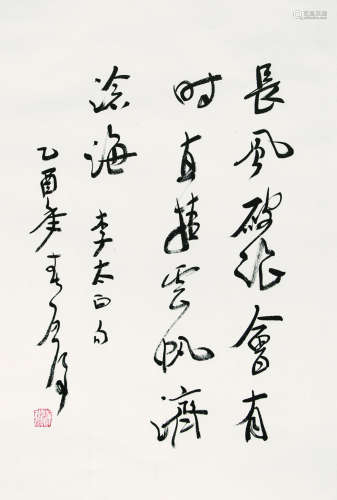 長風破浪會有
时直挂雲帆濟
滄海 李太白句
乙酉年春